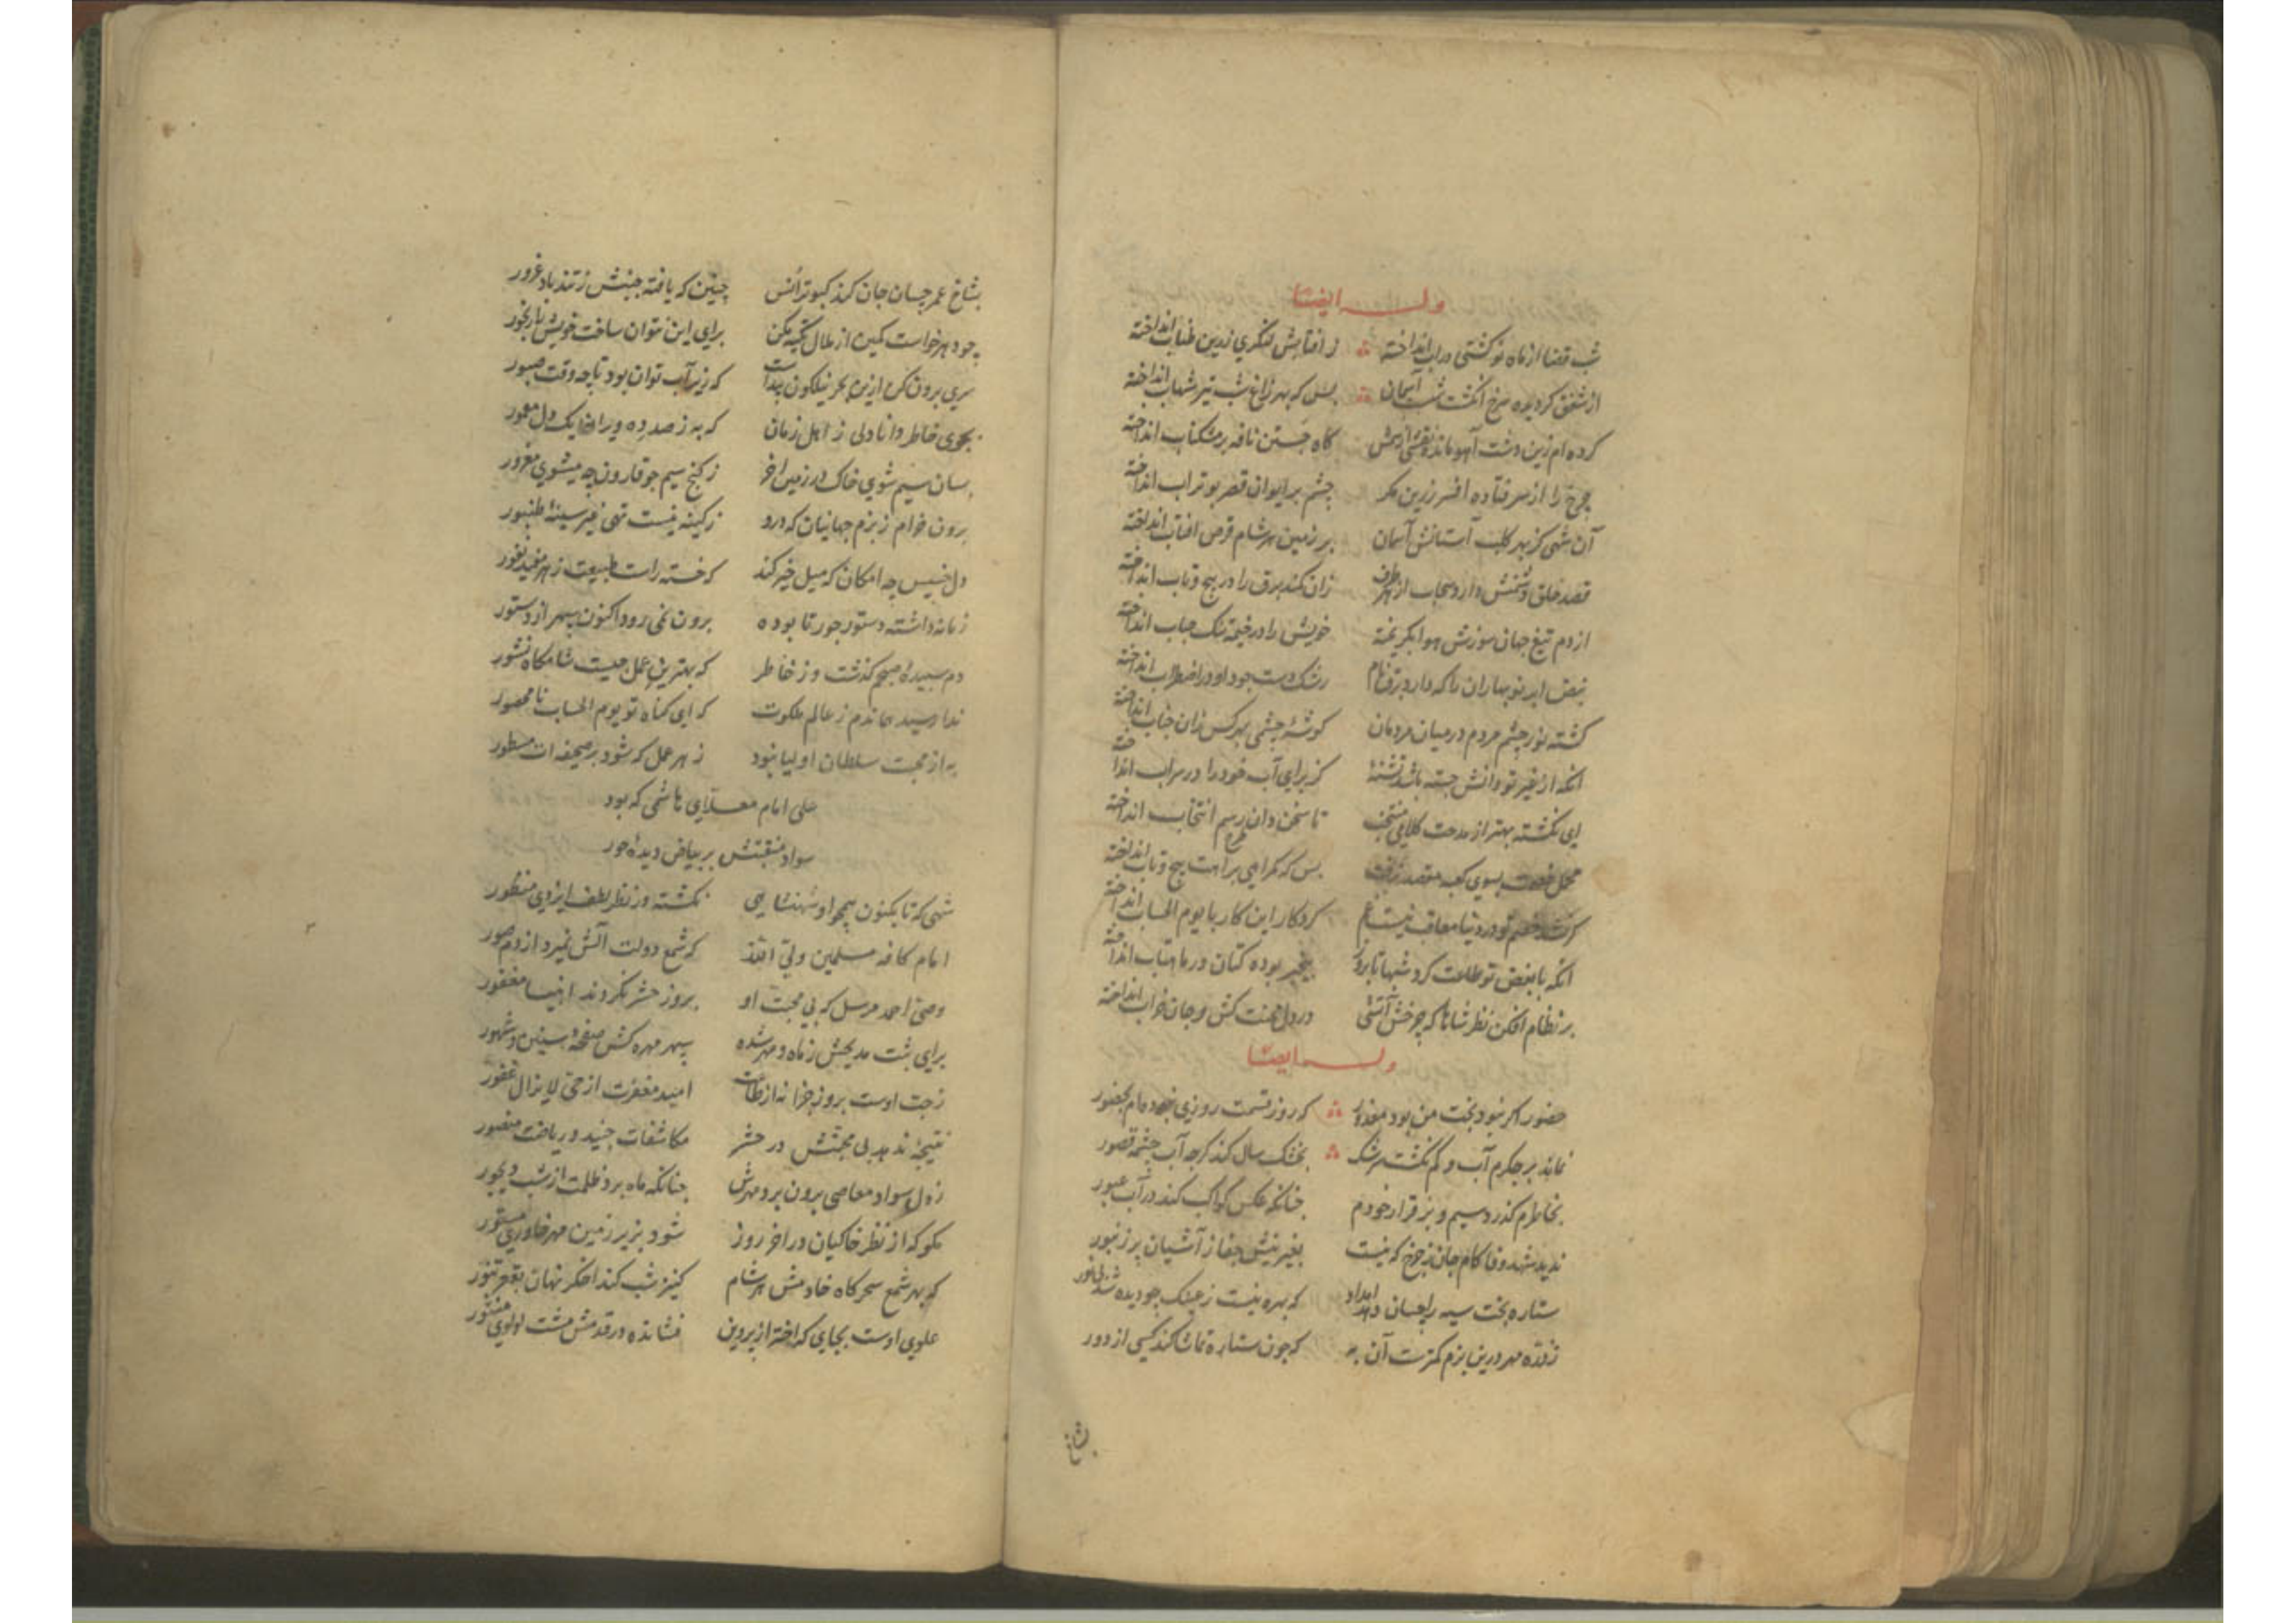 وله ایضا
شب قضا از ماه نو کشتی در آب انداخته ز افتابش لنگری زرین طناب انداخته
از شفق کردیده سرخ انگشت شب آسمان بس که بهر زاغ شب تیر شهاب انداخته
کرده ام زین دشت آهو مانده نقشی از سمش کاه جستن نافه بر مشکناب انداخته
چرخ را از سر فتاده افسر زرین مکر چشم بر ایوان قصر بوتراب انداخته
آن شهی کز بهر کلب آستانش آسمان بر زمین هر شام قرص افتاب انداخته
قصد خلق دشمنش دارد سحاب از هر طرف زان کمند برق را در پیچ و تاب انداخته
از دم تیغ جهان سوزش هوا بکریخته خویش را در خیمه تنک حباب انداخته
نبض ابر نوبهاران را که دارد برق نام رشک دست جود او در اضطراب انداخته
کشته نور چشم مردم در میان مردمان کوشه چشمی بهر کس زان جناب انداخته
انکه از غیر تو دانش جسته باشد تشنه کز برای آب خود را در سراب انداخته
ای نکشته بهتر از مدحت کلامی منتخب تا سخن دان رسم انتخاب انداخته
محمل خصمت بسوی کعبه مقصد نرفت بس که کمراهی براهت پیچ و تاب انداخته
کر نشد خصم تو در دنیا معاقب نیست غم کردکار این کار با یوم الحساب انداخته
انکه با بغض تو طاعت کرد شبها تا بروز بیخبر بوده کتان در ماهتاب انداخته
بر نظام افکن نظر شاها که چرخش آتشی در دل محنت کش و جان خراب انداخته
وله ایضا
حضور اکر نبود بخت من بود معذور که روز قسمت روزی نبوده ام بحضور
نماند بر جکرم آب و کم نکشت سرشک بخشک سال کند کرچه آب چشمه قصور
بخاطرم کذرد سیم و نبز قرار خودم چنانکه عکس کواکب کند در آب عبور
ندید شهد وفا کام جان ز چرخ که نیست بغیر نیش جفا ز آشیان پر زنبور
ستاره بخت سیه را چسان دهد امداد که بهره نیست ز عینک چو دیده شد بی نور
ز ذره مهر درین بزم کمترست آن به که چون ستاره تماشا کند کسی از دور
بشاخ
بشاخ عمر چسان جان کند کبوتر انس چنین که یافته جنبش ز تند باد غرور
چو دهر خواست کمین از طال تکیه مکن برای این نتوان ساخت خویش را رنجور
سری برون کن ازین بحر نیلکون پیداست که زیر آب توان بود تا چه وقت صبور
بجوی خاطر دانا دلی ز اهل زمان که به ز صد ده ویران یک دل معمور
بسان سیم شوی خاک در زمین اخر ز کنج سیم چو قارون چه میشوی مغرور
برون خرام ز بزم جهانیان که درو ز کینه نیست تهی غیر سینه طنبور
دل خسیس چه امکان که میل خیر کند که خسته راست طبیعت ز هر مفید نفور
زمانه داشته دستور جور تا بوده برون نمی رود اکنون سپهر از دستور
دم سپیده صبحم کذشت در خاطر که بهترین عمل چیست شامکاه نشور
ندا رسید بجاندم ز عالم ملکوت که ای کناه تو یوم الحساب نامحصور
به از محبت سلطان اولیا نبود ز هر عمل که شود بر صحیفه ات مسطور
علی امام معلای هاشمی که بود
سواد منقبتش بر بیاض دیده حور
شهی که تا بکنون همچو او شهنشاهی نکشته در نظر لطف ایزدی منظور
امام کافه مسلمین ولی الله که شمع دولت آلش نمیرد از دم صور
وصی احمد مرسل که بی محبت او بروز حشر نکردند انبیا مغفور
برای ثبت مدیحش ز ماه و مهر شده سپهر مهره کش صفحه سنین و شهور
ز حب اوست بروز جزا نه از طاعات امید مغفرت از حی لایزال غفور
نتیجه ندهد بی محبتش در حشر مکاشفات جنید و ریاضت منصور
ز دل سواد معاصی برون برد مهرش چنانکه ماه برد ظلمت از شب دیجور
مکو که از نظر خاکیان در اخر روز شود بزیر زمین مهر خاوری مستور
که بهر شمع سحرکاه خادمش هر شام کنیز شب کند اخکر نهان بقعر تنور
علوی اوست بجایی که اختر از پروین فشانده در قدمش مشت لولوی منثور